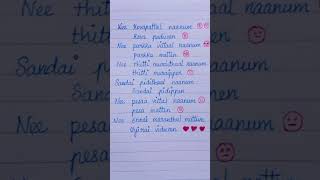 Nee Kovapattal naanum
Kova paduven
Nee parkka vittal naanum
parkka matten
Nee thitti muraithaal naanum
thitti muraippen
Sandai pidithaal naanum
Sandai pidippen
Nee pesaa vittal naanum
pesa matten
Nee Ennai maranthal mattum
Uyirai viduven